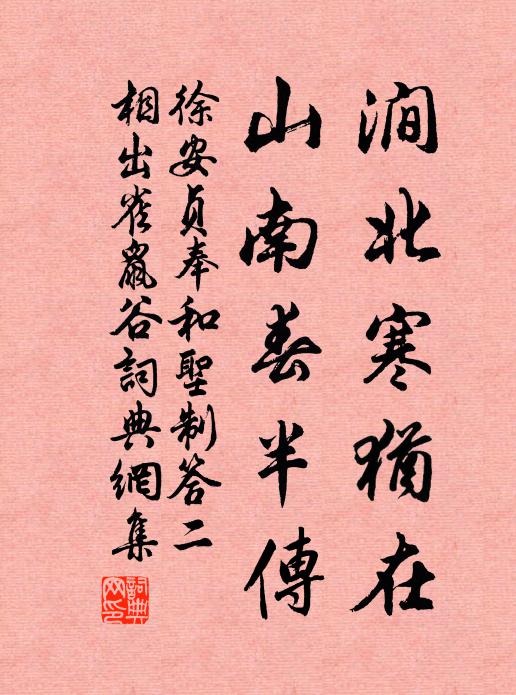 澗北寒猶在
山南春半傳
徐安貞奉和聖制答二
相出雀鼠谷詞典網集
詞典网印